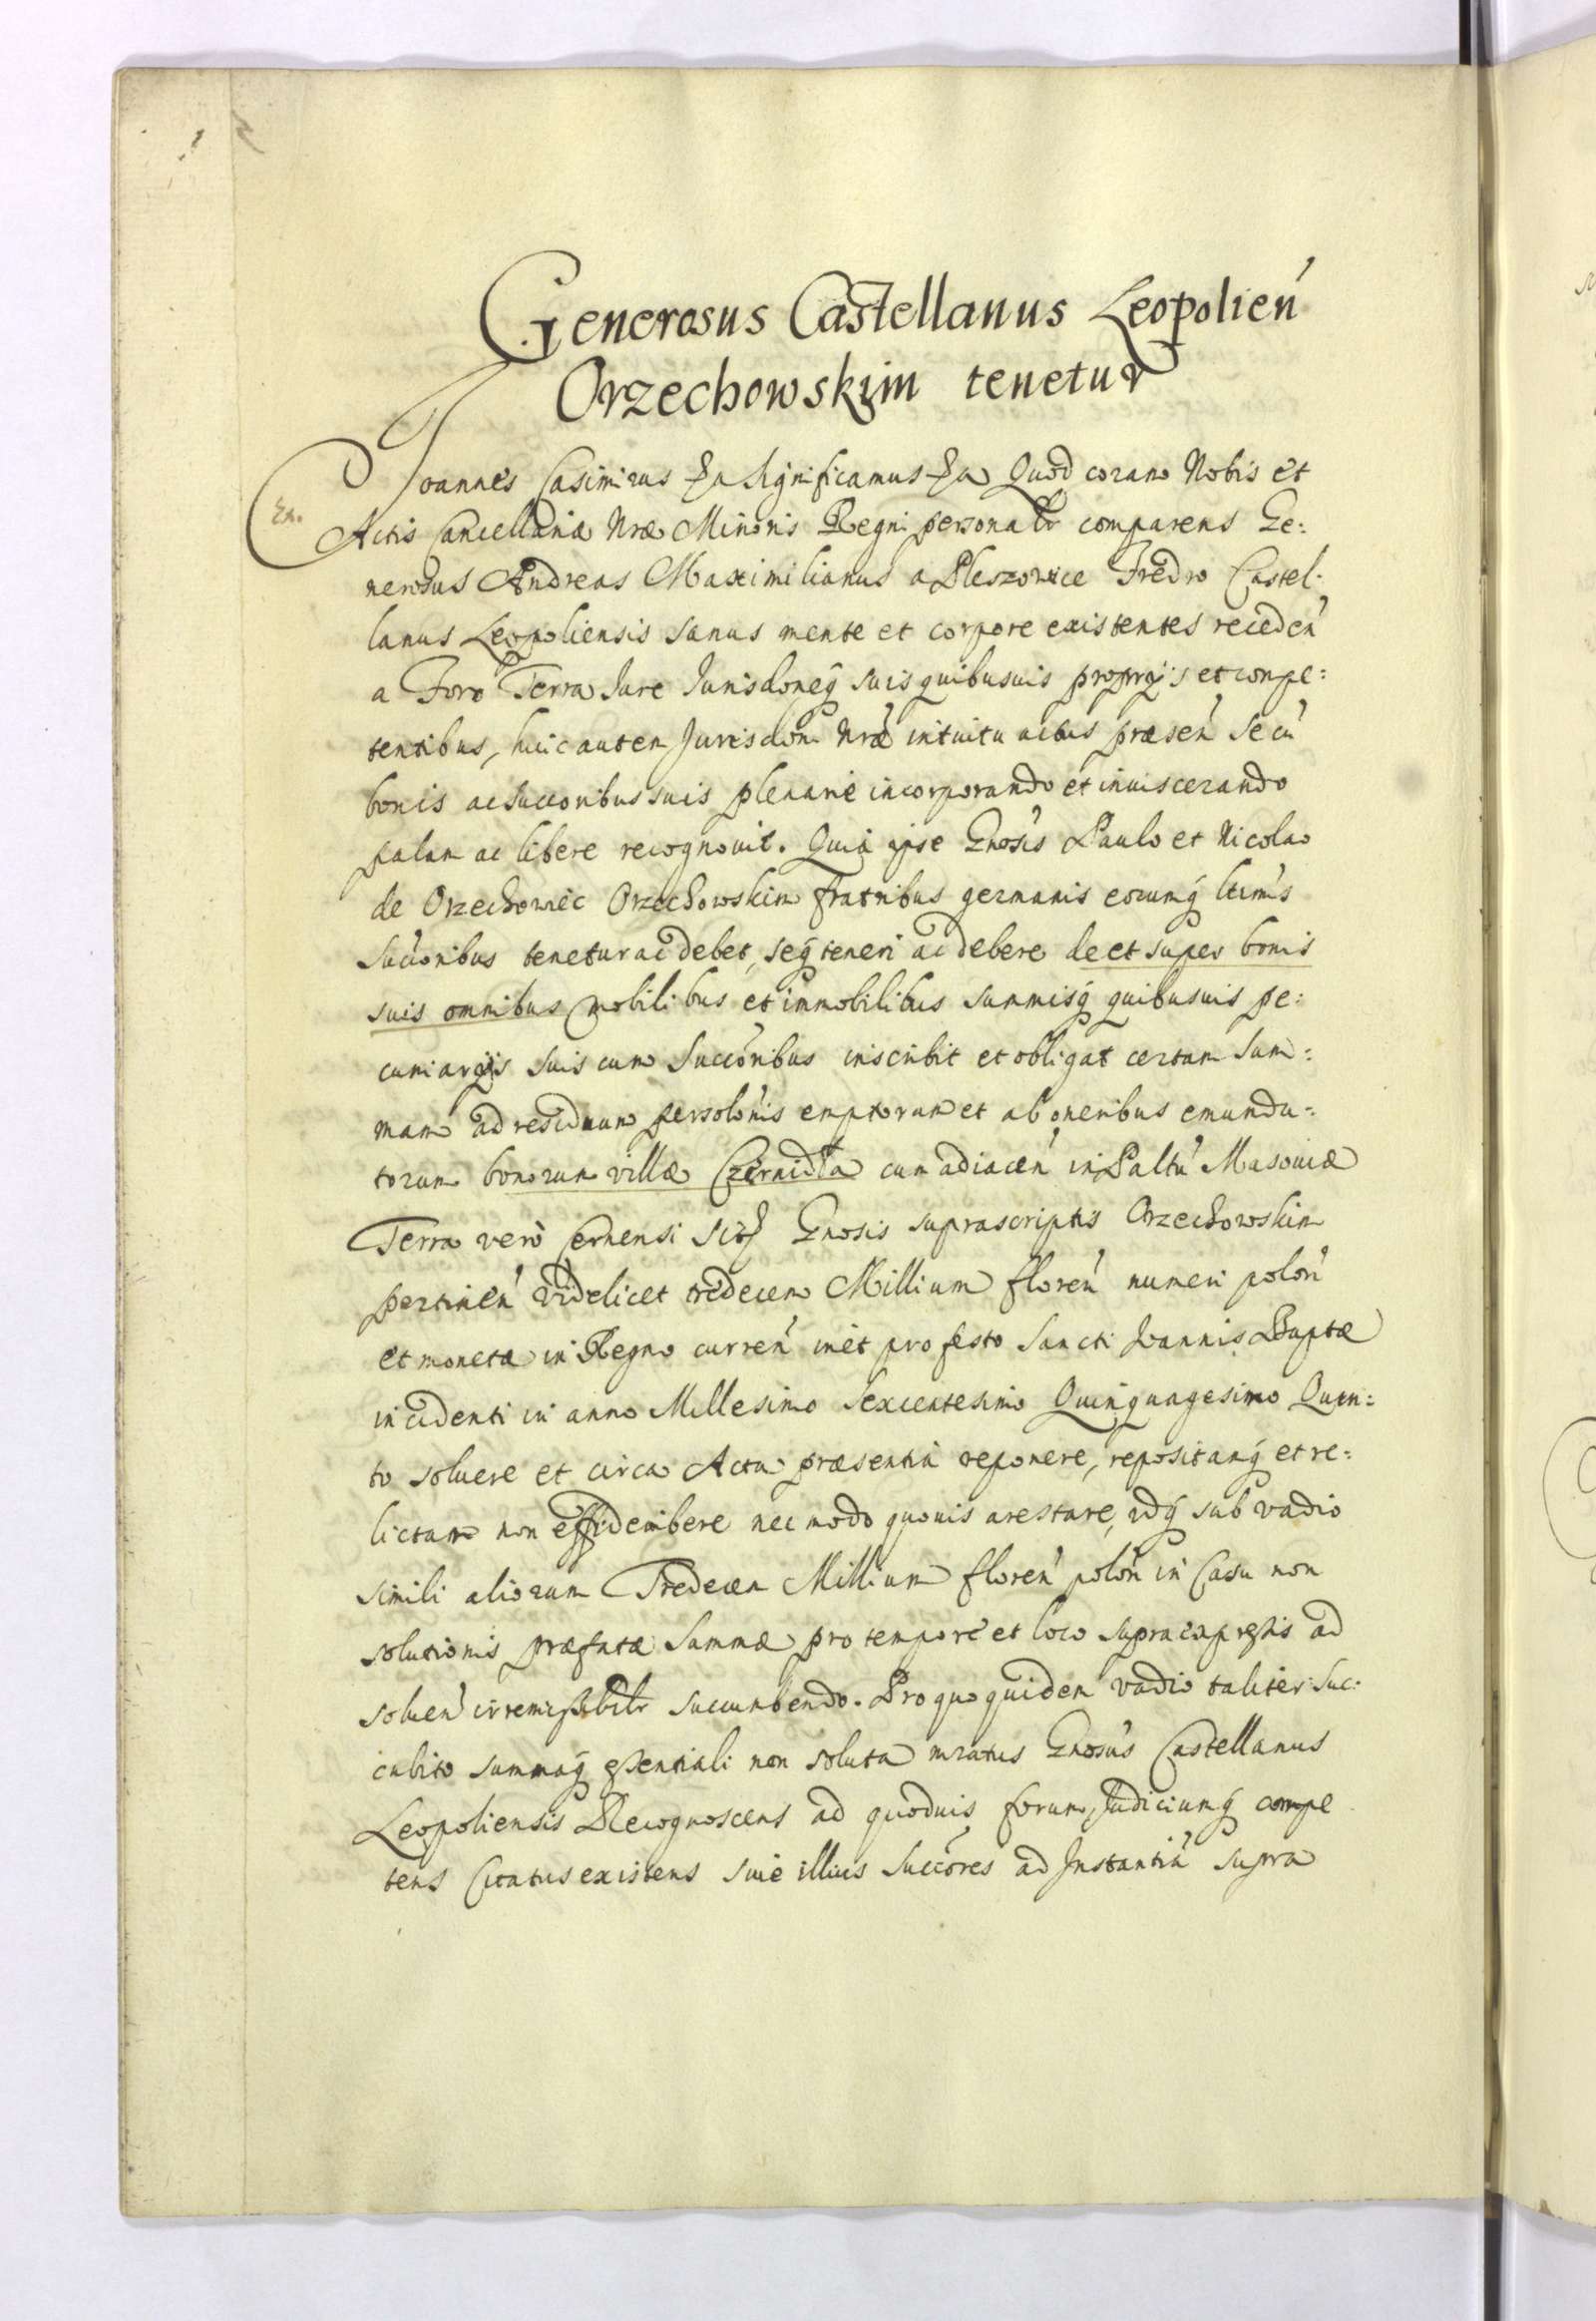 Generosus Castellanus Leopolień
Orzechowskim tenetur
Ioannes Casimirus Significamus Quod coram Nobis et
Ex.
Actis Cancellariæ Nræ Minoris Regni personalr comparens Ge:
nerosus Andreas Maximilianus a Pleszowice Fredro Castel:
lanus Leopoliensis sanus mente et corpore existentes recedeń
a Foro Terra Iure Iurisdoneq suis quibusuis proprijs et compe:
tentibus, huic autem Jurisdoni Nræ intuitu actus præseń se cú
bonis ac succoribus suis plenarie incorporando et inuiscerando
palam ac libere recognouit. Quia ipse Gnosis Paulo et Nicolao
de Orzechowiec Orzechowskim fratribus germanis eorumq ltimis
succoribus tenetur ac debet, seq teneri ac debere de et super bonis
suis omnibus mobilibus et immobilibus summisq quibusuis pe:
cuniarijs suis cum succoribus inscribit et obligat certam sum:
mam ad residuum persolonis emptorum et ab oneribus emundu:
torum bonorum villæ Czernidła cum adiaceń in Paltú Masouiæ
Terra vero Cernensi Gnosis suprascriptis Orzechowskim
pertineń videlicet tredecem Millium floreń numeri poloń
et moneta in Regno curreń inet pro festo Sancti Joannis Baptæ
incidenti in anno Millesimo Sexcentesimo Quinquagesimo Quin:
to soluere et circa Acta præsentia reponere, repositamq et re:
lictam non nec modo quouis arestare, idq sub vadio
simili aliorum Tredecem Millium floreń poloń in Casu non
solutionis præfatæ Summæ pro tempore et loco supra expressis ad
solueń irremissibilr succumbendo. Pro quo quidem vadio taliter suc:
cubito summaq essentiali non soluta mratus Gnosus Castellanus
Leopoliensis Recognoscens ad quoduis forum, Judiciumq compe
tens Citatus existens siue illius Succores ad Instantiá supra